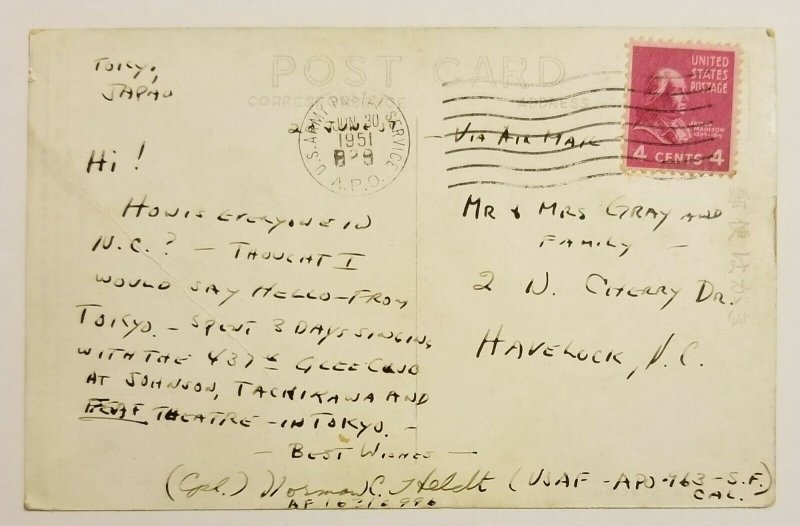 POST CARD
CORRESPONDENCE
ADDRESS
TOKYO,
JAPAN
29 JUNE 51
U.S. ARMY POSTAL SERVICE
JUN 30
1951
A.P.O.
UNITED
STATES
POSTAGE
JAMES
MADISON
4 CENTS 4
郵便はがき
VIA AIR MAIL
HI!
HOW IS EVERYONE IN
N.C.? - THOUGHT I
WOULD SAY HELLO - FROM
TOKYO. - SPENT 3 DAYS SINGING
WITH THE 437th GLEE CLUB
AT JOHNSON, TACHIKAWA AND
FEAF THEATRE - IN TOKYO. -
- BEST WISHES -
(Cpl.) Norman C. Heldt (USAF - APO - 963 - S.F.)
CAL.
MR & MRS GRAY AND
FAMILY -
2 N. CHERRY DR.
HAVELOCK, N.C.